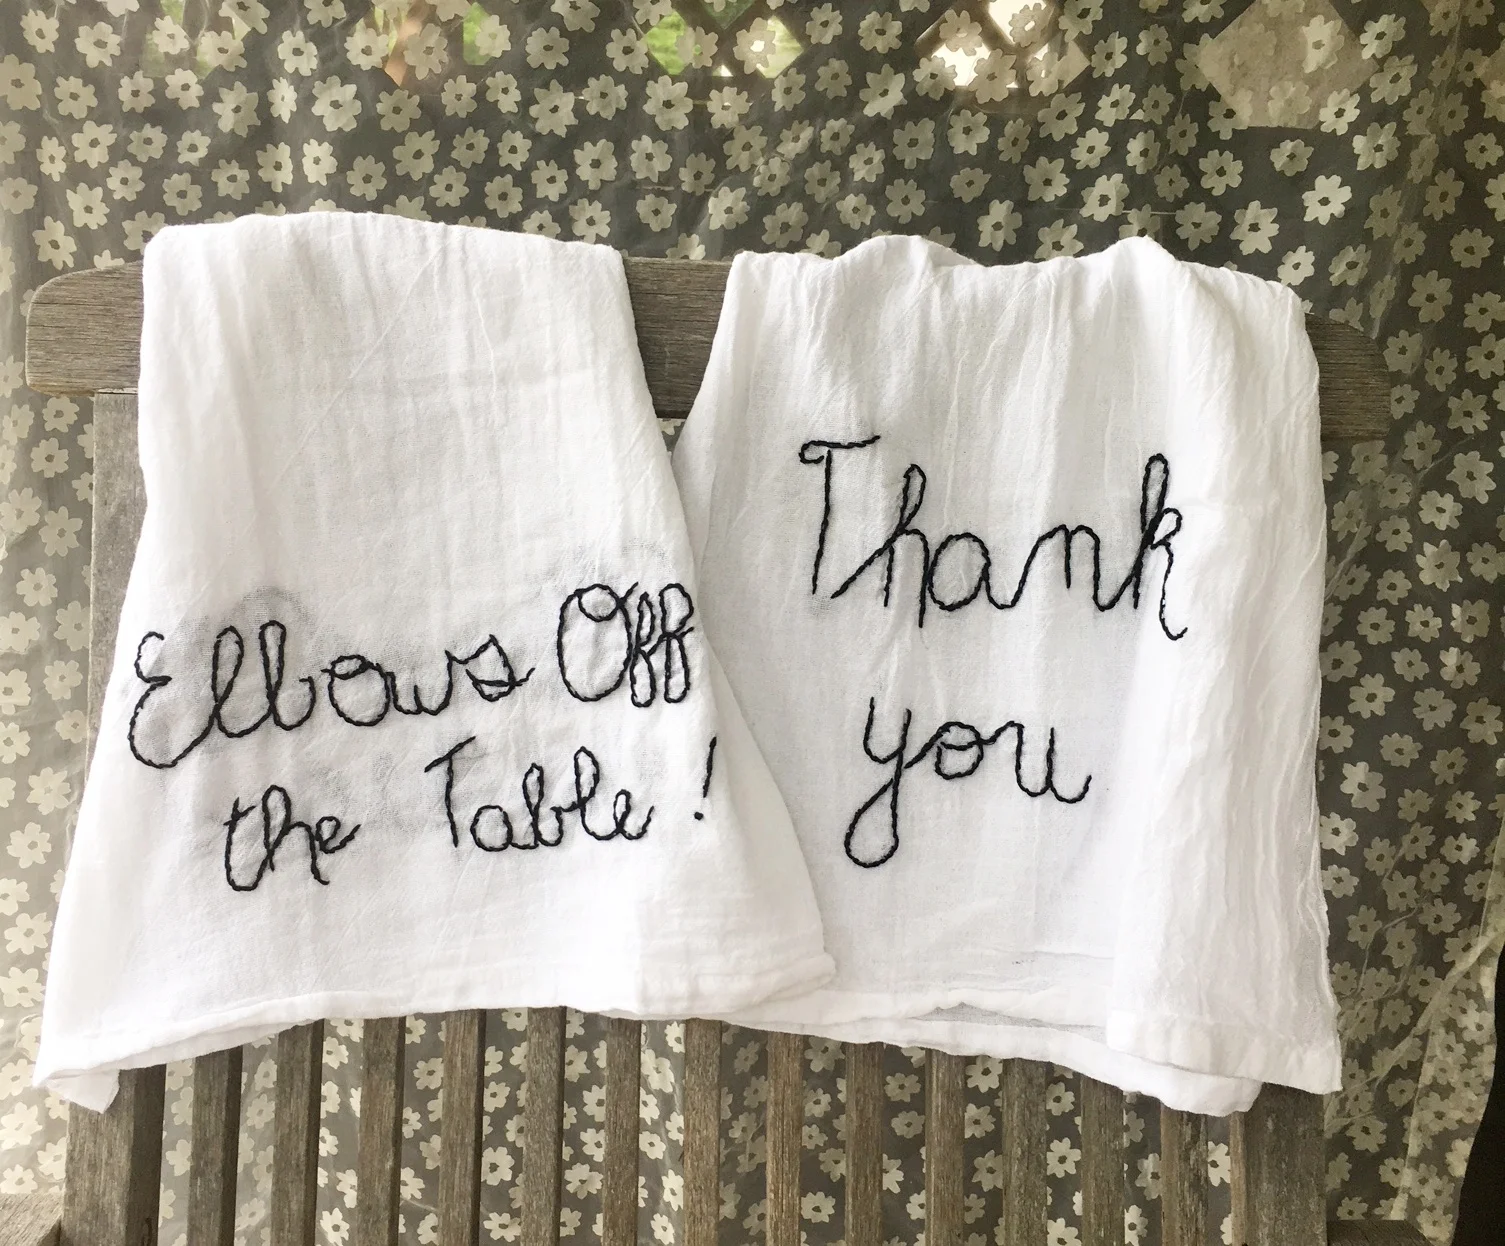 Ellows Off
the Table!
Thank
you